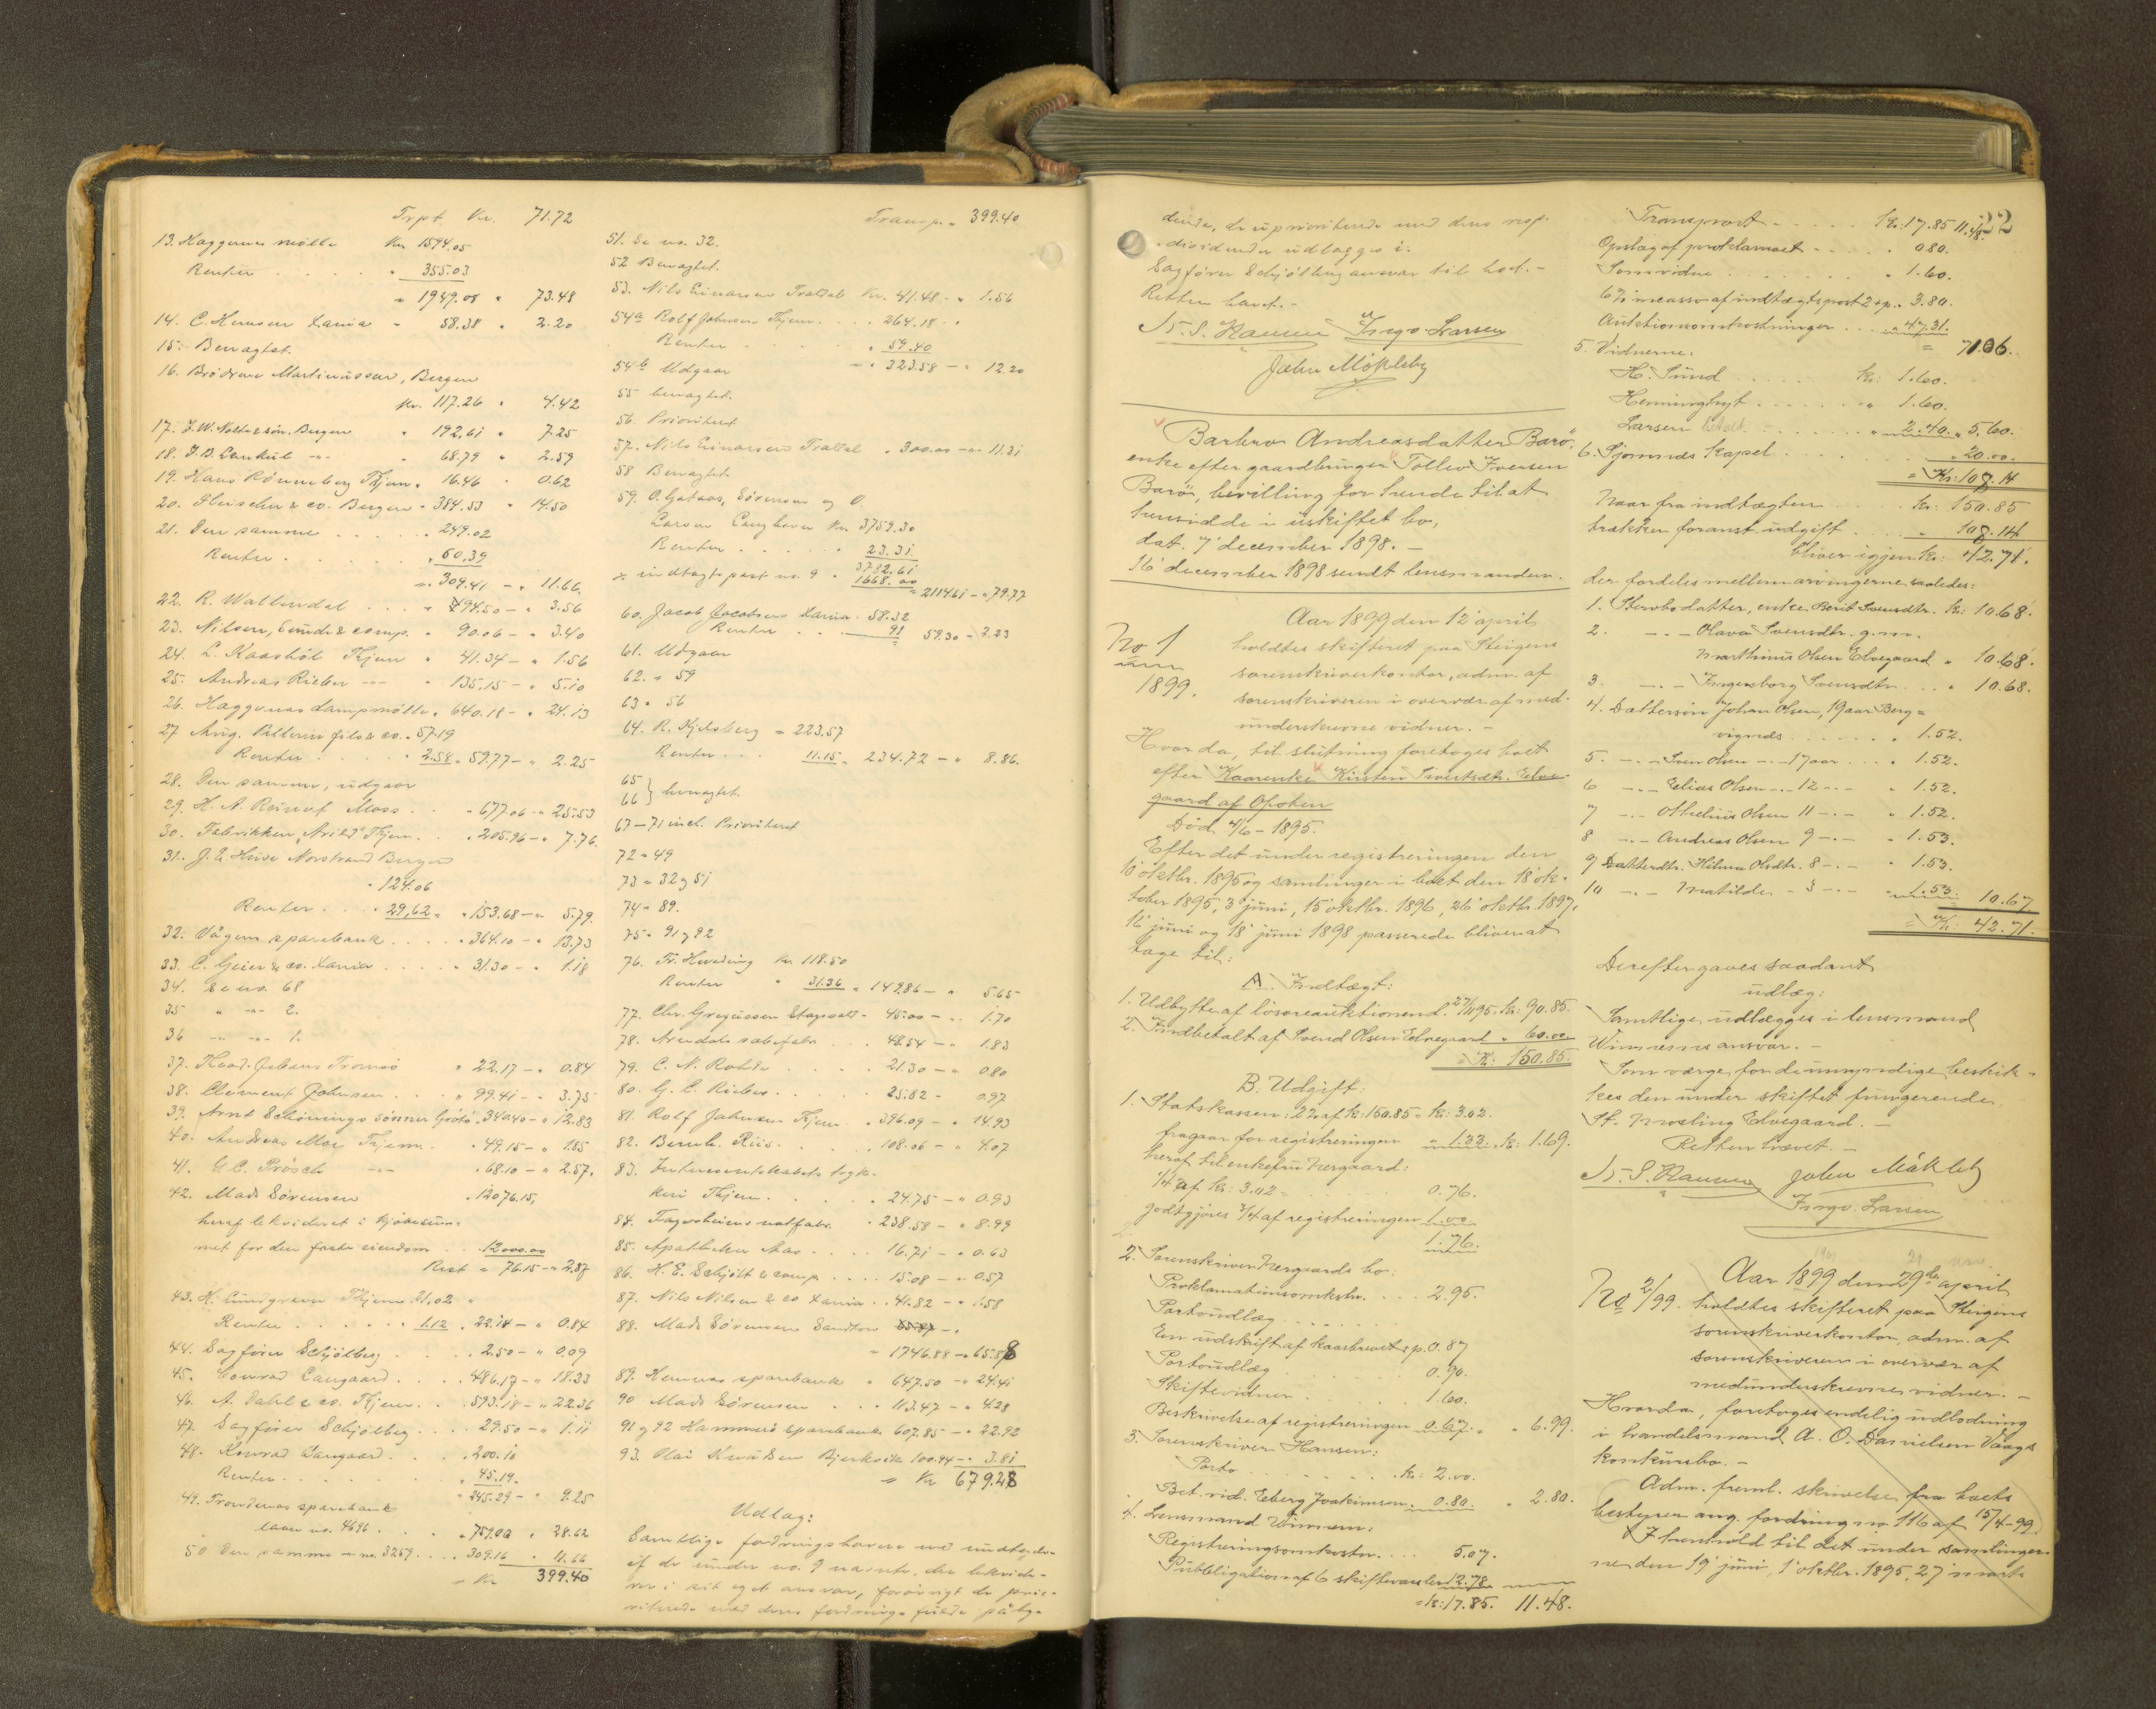 Trpt Kr. 71.72
13. Kaggernes mølle Kr 1594.05
Renter . . . . " 355.03
" 1949.08 " 73.48
14. C. Hansen Xania " 58.38 " 2.20
15. Beragtet.
16. Brödrene Martinussen, Bergen
Kr. 117.26 " 4.42
17. J. W. Noltesön. Bergen " 192,61 " 7.25
18. " 68.79 " 2.59
19. Hans Rönneberg Thjem " 16.46 " 0.62
20. & co. Bergen " 384.53 " 14.50
21. Den samme . . . . " 249.02
Renter . . . . " 60.39
" 309.41 - " 11.66
22. R. Wallendal . . . " 94.50 - " 3.56
23. Nilsen, & comp. " 90.06 - " 3.40
24. L. Kaarbøl Thjem " 41.34 - " 1.56
25. Andreas Rieber -"- " 135,15 - " 5.10
26. Kaggenæs dampmölle " 640.18 - " 24.13
27 Aug. Pellerin fils & co. " 57.19
Renter . . . " 2.58 " 59.77 - " 2.25
28. Den samme, udgaar
29. H. A. Reinert Moss . . " 677.06 - " 25.53
30. Fabrikken "Arild" Thjem . " 205.96 - " 7.76
31. J. E. Huse Norstrand Bergen
" 124.06
Renter . . . " 29,62 = " 153.68 - " 5.79.
32. Vågens sparebank . . . " 364.10 - " 13.73
33. C. Geier & co. Xania . . . " 31.30 - " 1.18
34. Se no. 68
35 " -"- 2.
36 -"- -"- 1.
37. Konr. Johans Tromsö " 22.17 - " 0.84
38. Clement Johnsen . . " 99.41 - " 3.75
39. Arnt Schönings sönner Grötö " 340.40 - " 12.83
40. Andreas Moe Thjem . " 49.15 - " 1.85
41. G. C. Prösch -"- " 68.10 - " 2.57.
42. Mads Sörensen " 12076.15,
heraf likvideret i kjöbesum-
met for den faste eiendom . . 12000.00
Rest = 76.15 - " 2.87
43. H. Lundgreen Thjem 21,02 "
Renter . . . . . 1.12 " 22.14 - " 0.84
44. Sagförer Schjölberg . . . " 2.50 - " 0.09
45. Conrad Langaard . . . " 486.17 - " 18.33
46. A. Dahl & co. Thjem . . " 593.18 - " 22.36
47. Sagförer Schjölberg . . . " 29.50 - " 1.11
48. Konrad Langaard . . . " 200.10
Renter . . . . . " 45.19.
" 245.29 - " 9.25
49. Trondenæs sparebank
laan no. 4696 . . . " 759.00 " 28.62
50 Den samme - no. 3259 . . . " 309.16 " 11.66
= Kr 399.40
Transp. " 399.40
51. Se no. 32.
52 Beragtet.
53. Nils Einarsen Traldal Kr. 41.48 - " 1.56
54a Rolf Johnsen Thjem . . . " 264.18 - "
Renter . . . . " 59.40
- " 323.58 - " 12.20
54b Udgaar
55 beragtet.
56. Prioriteret
57. Nils Einarsen Traldal " 300.00 - " 11.31
58 Beragtet.
59. O. Gotaas, Sörensen og O.
Larsen Langhavn Kr 3759.30
Renter . . . . 23.31
3782.61
÷ indtægtspost no. 9 " 1668.00
" 2114.61 - " 79.77
60. Jacob Jacobsen Xania " 58.32
Renter . . . 91 59.30 - 2.23
61. Udgaar
62. = 59
63 = 56
64. R. Kjelsberg = 223.57
Renter . . . 11.15 = 234.72 - " 8.86.
65
66 } beragtet.
67 - 71 incl. Prioriteret
72 = 49
73 = 32 og 51
74 = 89.
75 = 91 og 92
76. Fr. Hveding Kr. 118.50
Renter " 31.36 = 149.86 - " 5.65
77. Chr. Gregussen " 45.00 - " 1.70
78. Arendals sabefabr. . . . 48.54 - " 1.83
79. C. N. Rohde . . . . 21.30 - " 0.80
80. G. C. Rieber . . . . . 25.82 - 0.97
81. Rolf Johnsen Thjem . " 396.09 - " 14.93
82. Bernh. Riis . . . . . 108.06 - " 4.07
83. Interessentskabets tryk-
keri Thjem . . . . " 24.75 - " 0.93
84. Fagerheims notfabr. " 238.58 - " 8.99
85. Apotheker Aas . . . . 16.71 - " 0.63
86. H. E. Schjölt & comp. . . . 15.08 - " 0.57
87. Nils Nilsen & co Xania . . 41.82 - " 1.58
88. Mads Sörensen Sandtorv
= 1746.88 - " 65.88
89. Hemnes sparebank " 647.50 - " 24.41
90 Mads Sörensen . . . " 113.47 - " 4.28
91 og 92 Hammerö sparebank 607.85 - " 22.92
93. Olai Knudsen Bjerkvik 100.94 - " 3.81
= Kr 679.28
Udlæg:
Samtlige fordringshavere med undtagelse
af de under no. 9 nævnte, der likvide-
rer i sit eget ansvar, forövrigt de prio-
riterede med deres fordringers fulde pålyg-
dende, de uprioriterede med dens resp.
dividender udlægges i.
Sagförer Schjölbergs ansvar til boet. -
Retten hævet. -
N. S. Hansen Ingv. Larsen
John Mökleby
Barbro Andreasdatter Barö,
enke efter gaardbruger Tollev Iversen
Barö, bevilling for hende til at
hensidde i uskiftet bo,
dat. 7 december 1898. -
16 december 1898 sendt lensmanden.
No 1
1899.
Aar 1899 den 12' april
holdtes skifteret paa Steigens
sorenskriverkontor, adm. af
sorenskriveren i overvær af med-
underskrevne vidner. -
Hvorda, til slutning foretoges boet
efter Kaarenke Kirsten Sivertsdtr. Elve-
gaard af Ofoten
Död 4/6 - 1895.
Efter det under registreringen den
10' oktbr. 1895 og samlinger i boet den 18' ok-
tober 1895, 3' juni, 15' oktbr. 1896, 26' oktbr. 1897,
16' juni og 18' juni 1898 passerede bliver at
tage til:
A. Indtægt:
1. Udbytte af lösöreauktionen d. 27/11 95. kr: 90.85.
2. Indbetalt af Svend Olsen Elvegaard " 60.00
= Kr: 150.85.
B. Udgift:
1. Statskassen: 2% af kr: 150.85 = kr: 3.02.
fragaar for registreringen " 1.33. kr: 1.69.
heraf til enkefru Nergaard:
1/4 af kr: 3.02 = . . . . . 0.76.
godtgjöres 3/4 af registreringen 1.00
1.76.
2. Sorenskriver Nergaards bo:
Proklamationsomkstn. . . . 2.95.
Portoudlæg . . . . . .
Em udskrift af kaarbrevet sp. 0.87
Portoudlæg . . . . . 0.90.
Skiftevidner . . . . . 1.60.
Beskrivelse af registreringen 0.67. " 6.99.
3. Sorenskriver Hansen:
Porto . . . . . . kr: 2.00.
Bet. vid. Eeberg Joakimsen. " 0.80. " 2.80.
4. Lensmand Wimsen:
Registreringsomkostn. . . . 5.07.
Publikation af 6 skiftevarsler 12.78
= kr: 17.85. 11.48.
22
Transport - . . . . . kr: 17.85 11.48.
Opslag af proklamaet - . . . . 0.80.
Som vidne . . . . . . " 1.60.
6% incasso af indtægtspost 2 " 3.80.
Auktionsomkostninger . . . " 47.31.
= 71.06.
5. Vidnerne:
H. Sund . . . . . kr: 1.60.
Henningbyt . . . . . " 1.60.
Larsen betalt . . . . . " 2.40. " 5.60.
6. Gjomnæs Kapel . . . . . " 20.00.
= Kr: 108.14
Naar fra indtægten . . . . kr: 150.85
trækkes foranst. udgift . . . " 108.14
bliver igjen kr: 42.71.
der fordeles mellem arvingerne saaledes:
1. Stervbodatter, enke Berit Svensdtr. kr: 10.68.
2. - " - Olava Svensdtr. g. m.
Marthinus Olsen Elvegaard " 10.68.
3. - " - Ingeborg Svensdtr. . . " 10.68.
4. Dattersön Johan Olsen, 19 aar Berg-
vignæs . . . . . . . " 1.52.
5. - " - Sven Olsen - " - 17 aar . . . " 1.52.
6 - " - Elias Olsen - " - 12 - " - " 1.52.
7 - " - Othelius Olsen 11 - " - " 1.52.
8 - " - Andreas Olsen 9 - " - " 1.53.
9 Datterdtr. Hilma Olsdtr. 8 - " - " 1.53.
10 - " - Matilde - 3 - " - " 1.53. 10.67
= Kr: 42.71.
Derefter gaves saadant
udlæg:
Samtlige udlægges i lensmand
Wimsens ansvar. -
Som værge for de umyndige beskik-
kes den under skiftet fungerende
St. Mosling Elvegaard. -
Retten hævet. -
N. S. Hansen John Mökleby
Ingv. Larsen
1901 21 nov.
No 2/99.
Aar 1899 den 29de april
holdtes skifteret paa Steigens
sorenskriverkontor, adm. af
sorenskriveren i overvær af
medunderskrevne vidner. -
Hvorda, foretoges endelig udlodning
i handelsmand A. O. Danielsen Vaags
konkursbo. -
Adm. freml. skrivelse fra boets
bestyrer ang. fordring no 116 af 15/4 - 99.
I henhold til det under samlinger-
ne den 19' juni, 1' oktbr. 1895, 27' marts